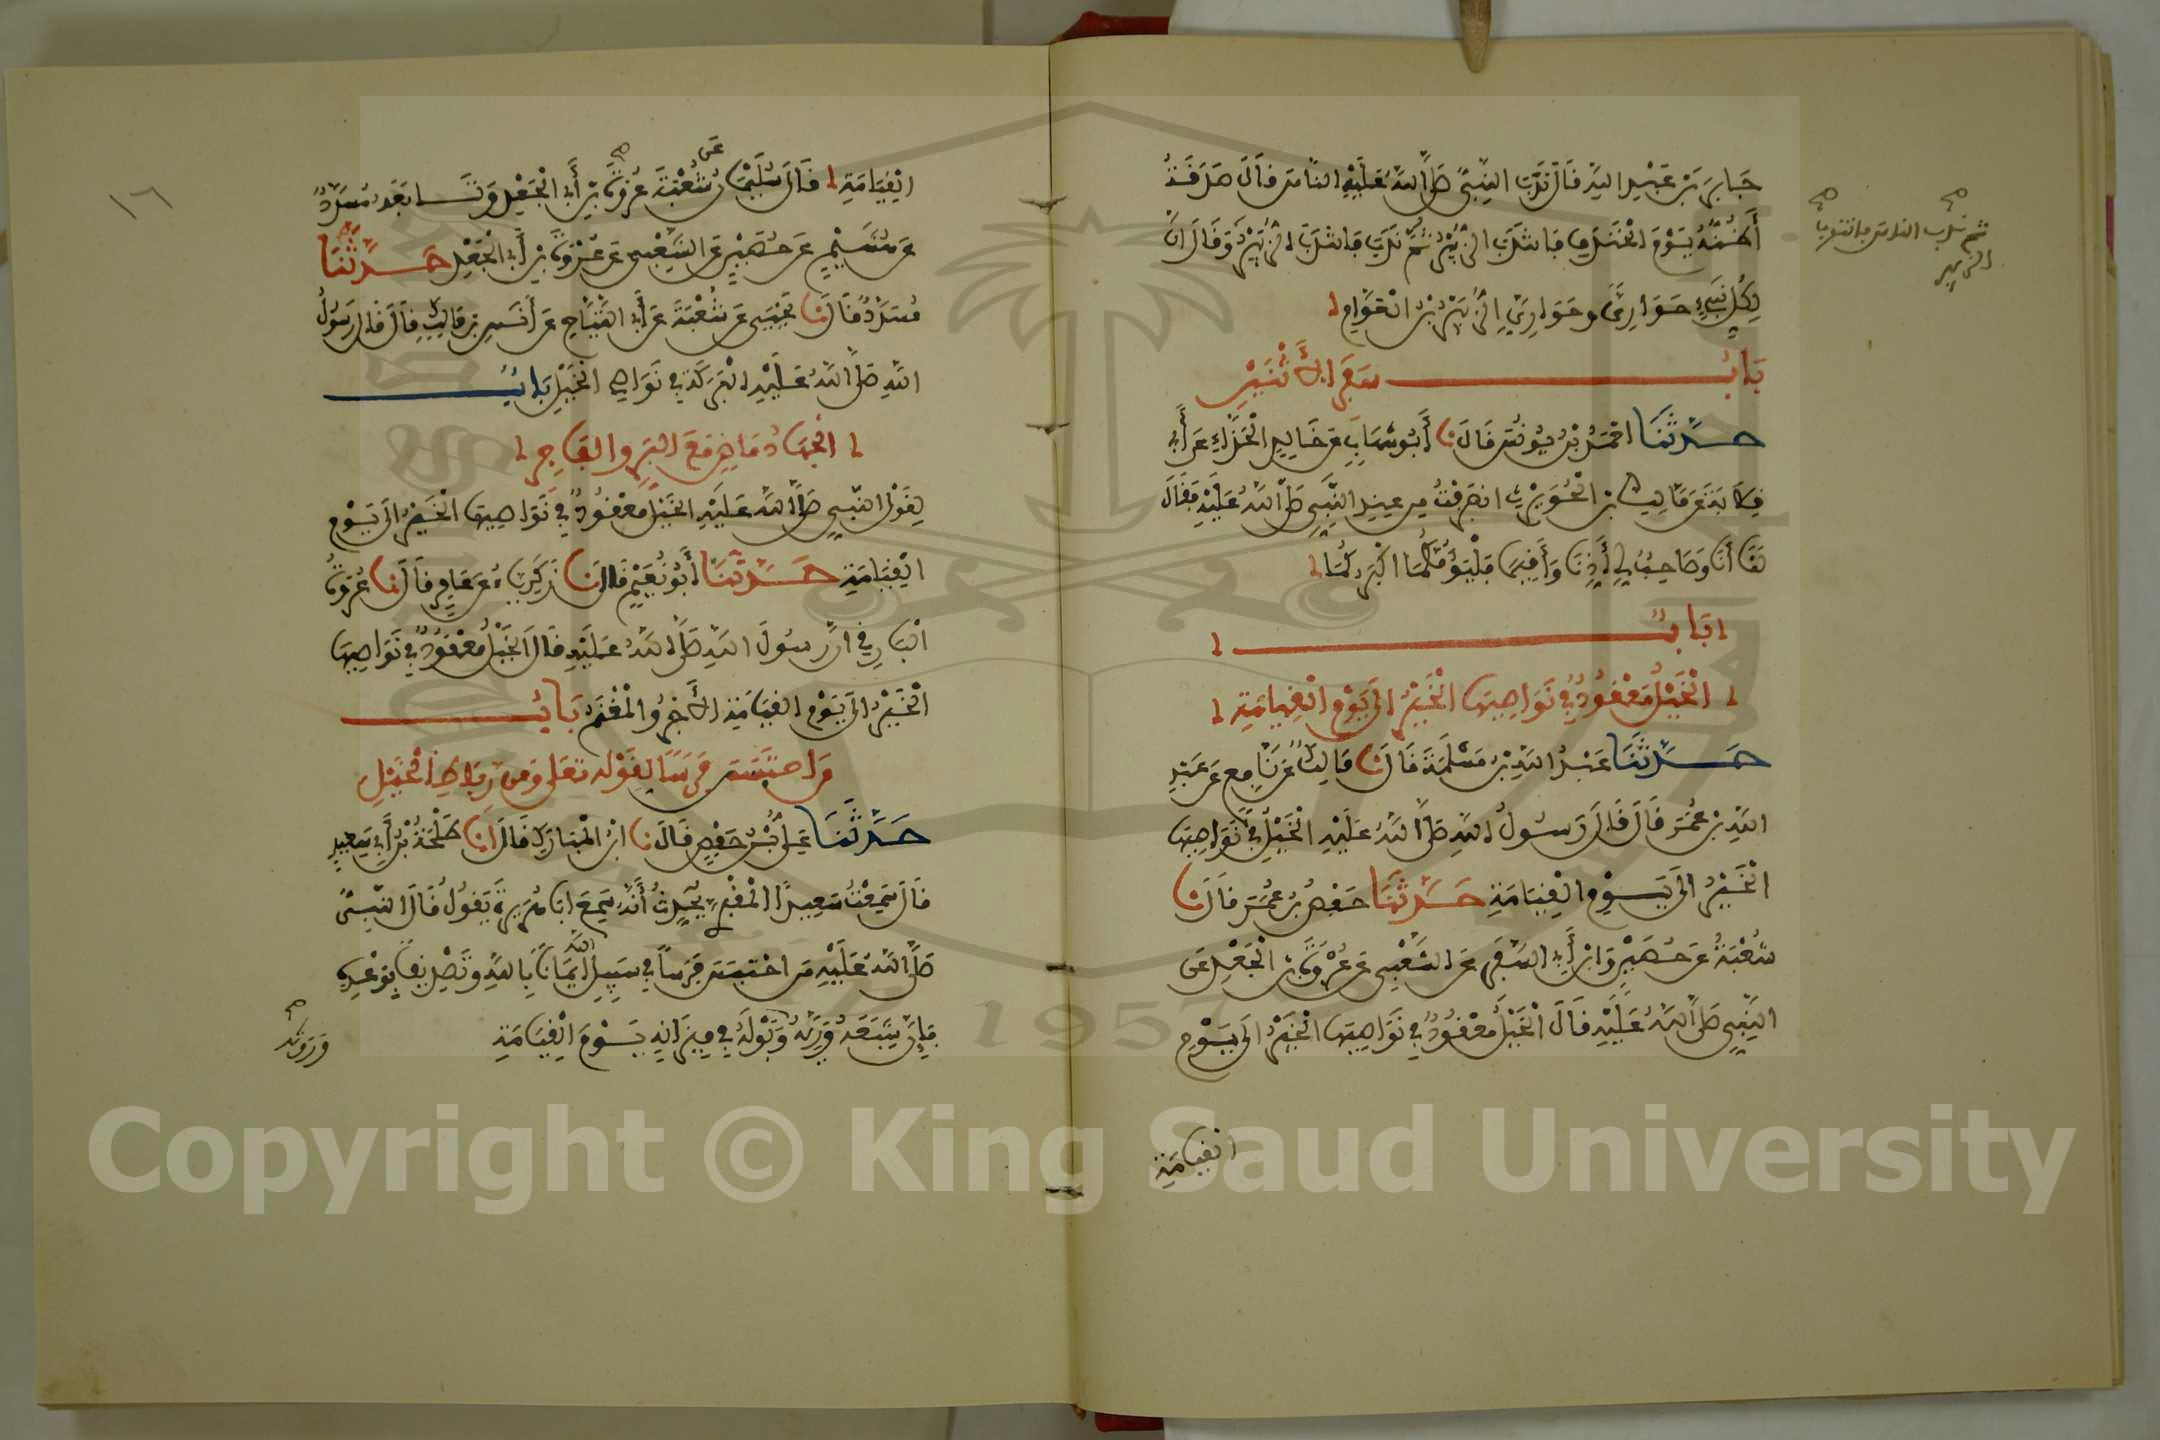 جَابِرَ بْنَ عَبْدِ اللهِ قَالَ نَدَبَ النَّبِيُّ صَلَّى اللهُ عَلَيْهِ النَّاسَ قَالَ صَدَقَةُ
أَظُنُّهُ يَوْمَ الْخَنْدَقِ فَانتَدَبَ الزُّبَيْرُ ثُمَّ نَدَبَ فَانتَدَبَ الزُّبَيْرُ وَقَالَ إِنَّ
لِكُلِّ نَبِيٍّ حَوَارِيَّ وحَوَارِيَّ الزُّبَيْرُ بْنُ الْعَوَّامِ
ثم ندب الناس فانتدب
الزبير
بَابُ سَفَرِ الِاثْنَيْنِ
حَدَّثَنَا احْمَدُ بْنُ يُونُسَ قَالَ نا أَبُو شِهَابٍ عَن خَالِدٍ الْحَذَّاءِ عَن أَبِي
قِلَابَةَ عَن مَالِكِ بْنِ الْحُوَيْرِثِ انصَرَفْتُ مِن عِندِ النَّبِيِّ صَلَّى اللهُ عَلَيْهِ فَقَالَ
لَنَا أَنَا وَصَاحِبٌ لِي أَذِّنَا وَأَقِيمَا وَلْيَؤُمَّكُمَا اكْبَرُكُمَا
بَابٌ
الْخَيْلُ مَعْقُودٌ فِي نَوَاصِيهَا الْخَيْرُ الَى يَوْمِ الْقِيَامَةِ
حَدَّثَنَا عَبْدُ اللهِ بْنُ مَسْلَمَةَ قَالَ نا مَالِكٌ عَن نَافِعٍ عَن عَبْدِ
اللهِ بْنِ عُمَرَ قَالَ قَالَ رَسُولُ اللهِ صَلَّى اللهُ عَلَيْهِ الْخَيْلُ فِي نَوَاصِيهَا
الْخَيْرُ الَى يَوْمِ الْقِيَامَةِ حَدَّثَنَا حَفْصُ بْنُ عُمَرَ قَالَ نا
شُعْبَةُ عَن حُصَيْنٍ وَابْنِ أَبِي السَّفَرِ عَن الشَّعْبِي عَن عُرْوَةَ بْنِ الْجَعْدِ عَن
النَّبِيِّ صَلَّى اللهُ عَلَيْهِ قَالَ الْخَيْلُ مَعْقُودٌ فِي نَوَاصِيهَا الْخَيْرُ الَى يَوْمِ
القيامة
١٦
الْقِيَامَةِ قَالَ سُلَيْمَانُ عَن شُعْبَةَ عُرْوَةُ بْنُ أَبِي الْجَعْدِ وَتَابَعَهُ مُسَدَّدٌ
عَن هُشَيْمٍ عَن حُصَيْنٍ عَن الشَّعْبِي عَن عُرْوَةَ بْنِ أَبِي الْجَعْدِ حَدَّثَنَا
مُسَدَّدٌ قَالَ نا يَحْيَى عَن شُعْبَةَ عَن أَبِي التَّيَّاحِ عَن أَنَسِ بْنِ مَالِكٍ قَالَ قَالَ رَسُولُ
اللهِ صَلَّى اللهُ عَلَيْهِ الْبَرَكَةُ فِي نَوَاصِي الْخَيْلِ بَابُ
الْجِهَادُ مَاضٍ مَعَ الْبَرِّ وَالْفَاجِرِ
لِقَوْلِ النَّبِيِّ صَلَّى اللهُ عَلَيْهِ الْخَيْلُ مَعْقُودٌ فِي نَوَاصِيهَا الْخَيْرُ الَى يَوْمِ
الْقِيَامَةِ حَدَّثَنَا أَبُو نُعَيْمٍ قَالَ نا زَكَرِيَّاءُ عَن عَامِرٍ قَالَ نا عُرْوَةُ
الْبَارِقِي أَنَّ رَسُولَ اللهِ صَلَّى اللهُ عَلَيْهِ قَالَ الْخَيْلُ مَعْقُودٌ فِي نَوَاصِيهَا
الْخَيْرُ الَى يَوْمِ الْقِيَامَةِ الْأَجْرُ وَالْمَغْنَمُ بَابُ
مَن احْتَبَسَ فَرَسًا لِقَوْلِهِ تَعَلَى وَمِن رِبَاطِ الْخَيْلِ
حَدَّثَنَا عَلِيُّ بْنُ حَفْصٍ قَالَ نا ابْنُ الْمُبَارَكِ قَالَ انا طَلْحَةُ بْنُ أَبِي سَعِيدٍ
قَالَ سَمِعْتُ سَعِيدًا الْمَقْبُرِي يُحَدِّثُ أَنَّهُ سَمِعَ ابَا هُرَيْرَةَ يَقُولُ قَالَ النَّبِيُّ
صَلَّى اللهُ عَلَيْهِ مَن احْتَبَسَ فَرَسًا فِي سَبِيلِ اللهِ ايمَانًا بِاللهِ وَتَصْدِيقًا بِوَعْدِهِ
فَإِنَّ شِبَعَهُ وَرِيَّهُ وَبَوْلَهُ فِي مِيزَانِهِ يَوْمَ الْقِيَامَةِ
وروثه
Copyright © King Saud University
1957